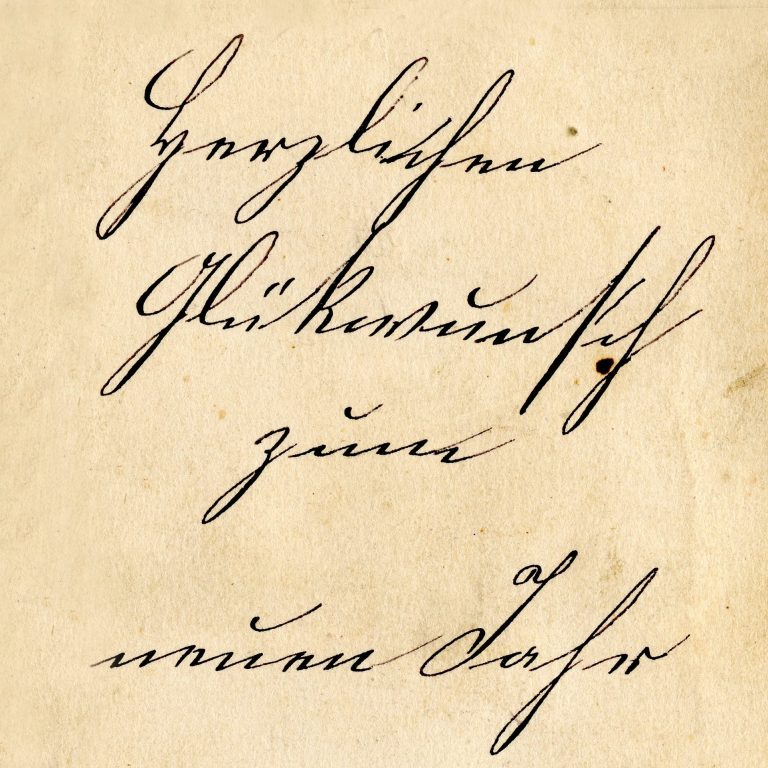 Herzlichen
Glükwunsch
zum
neuen Jahr